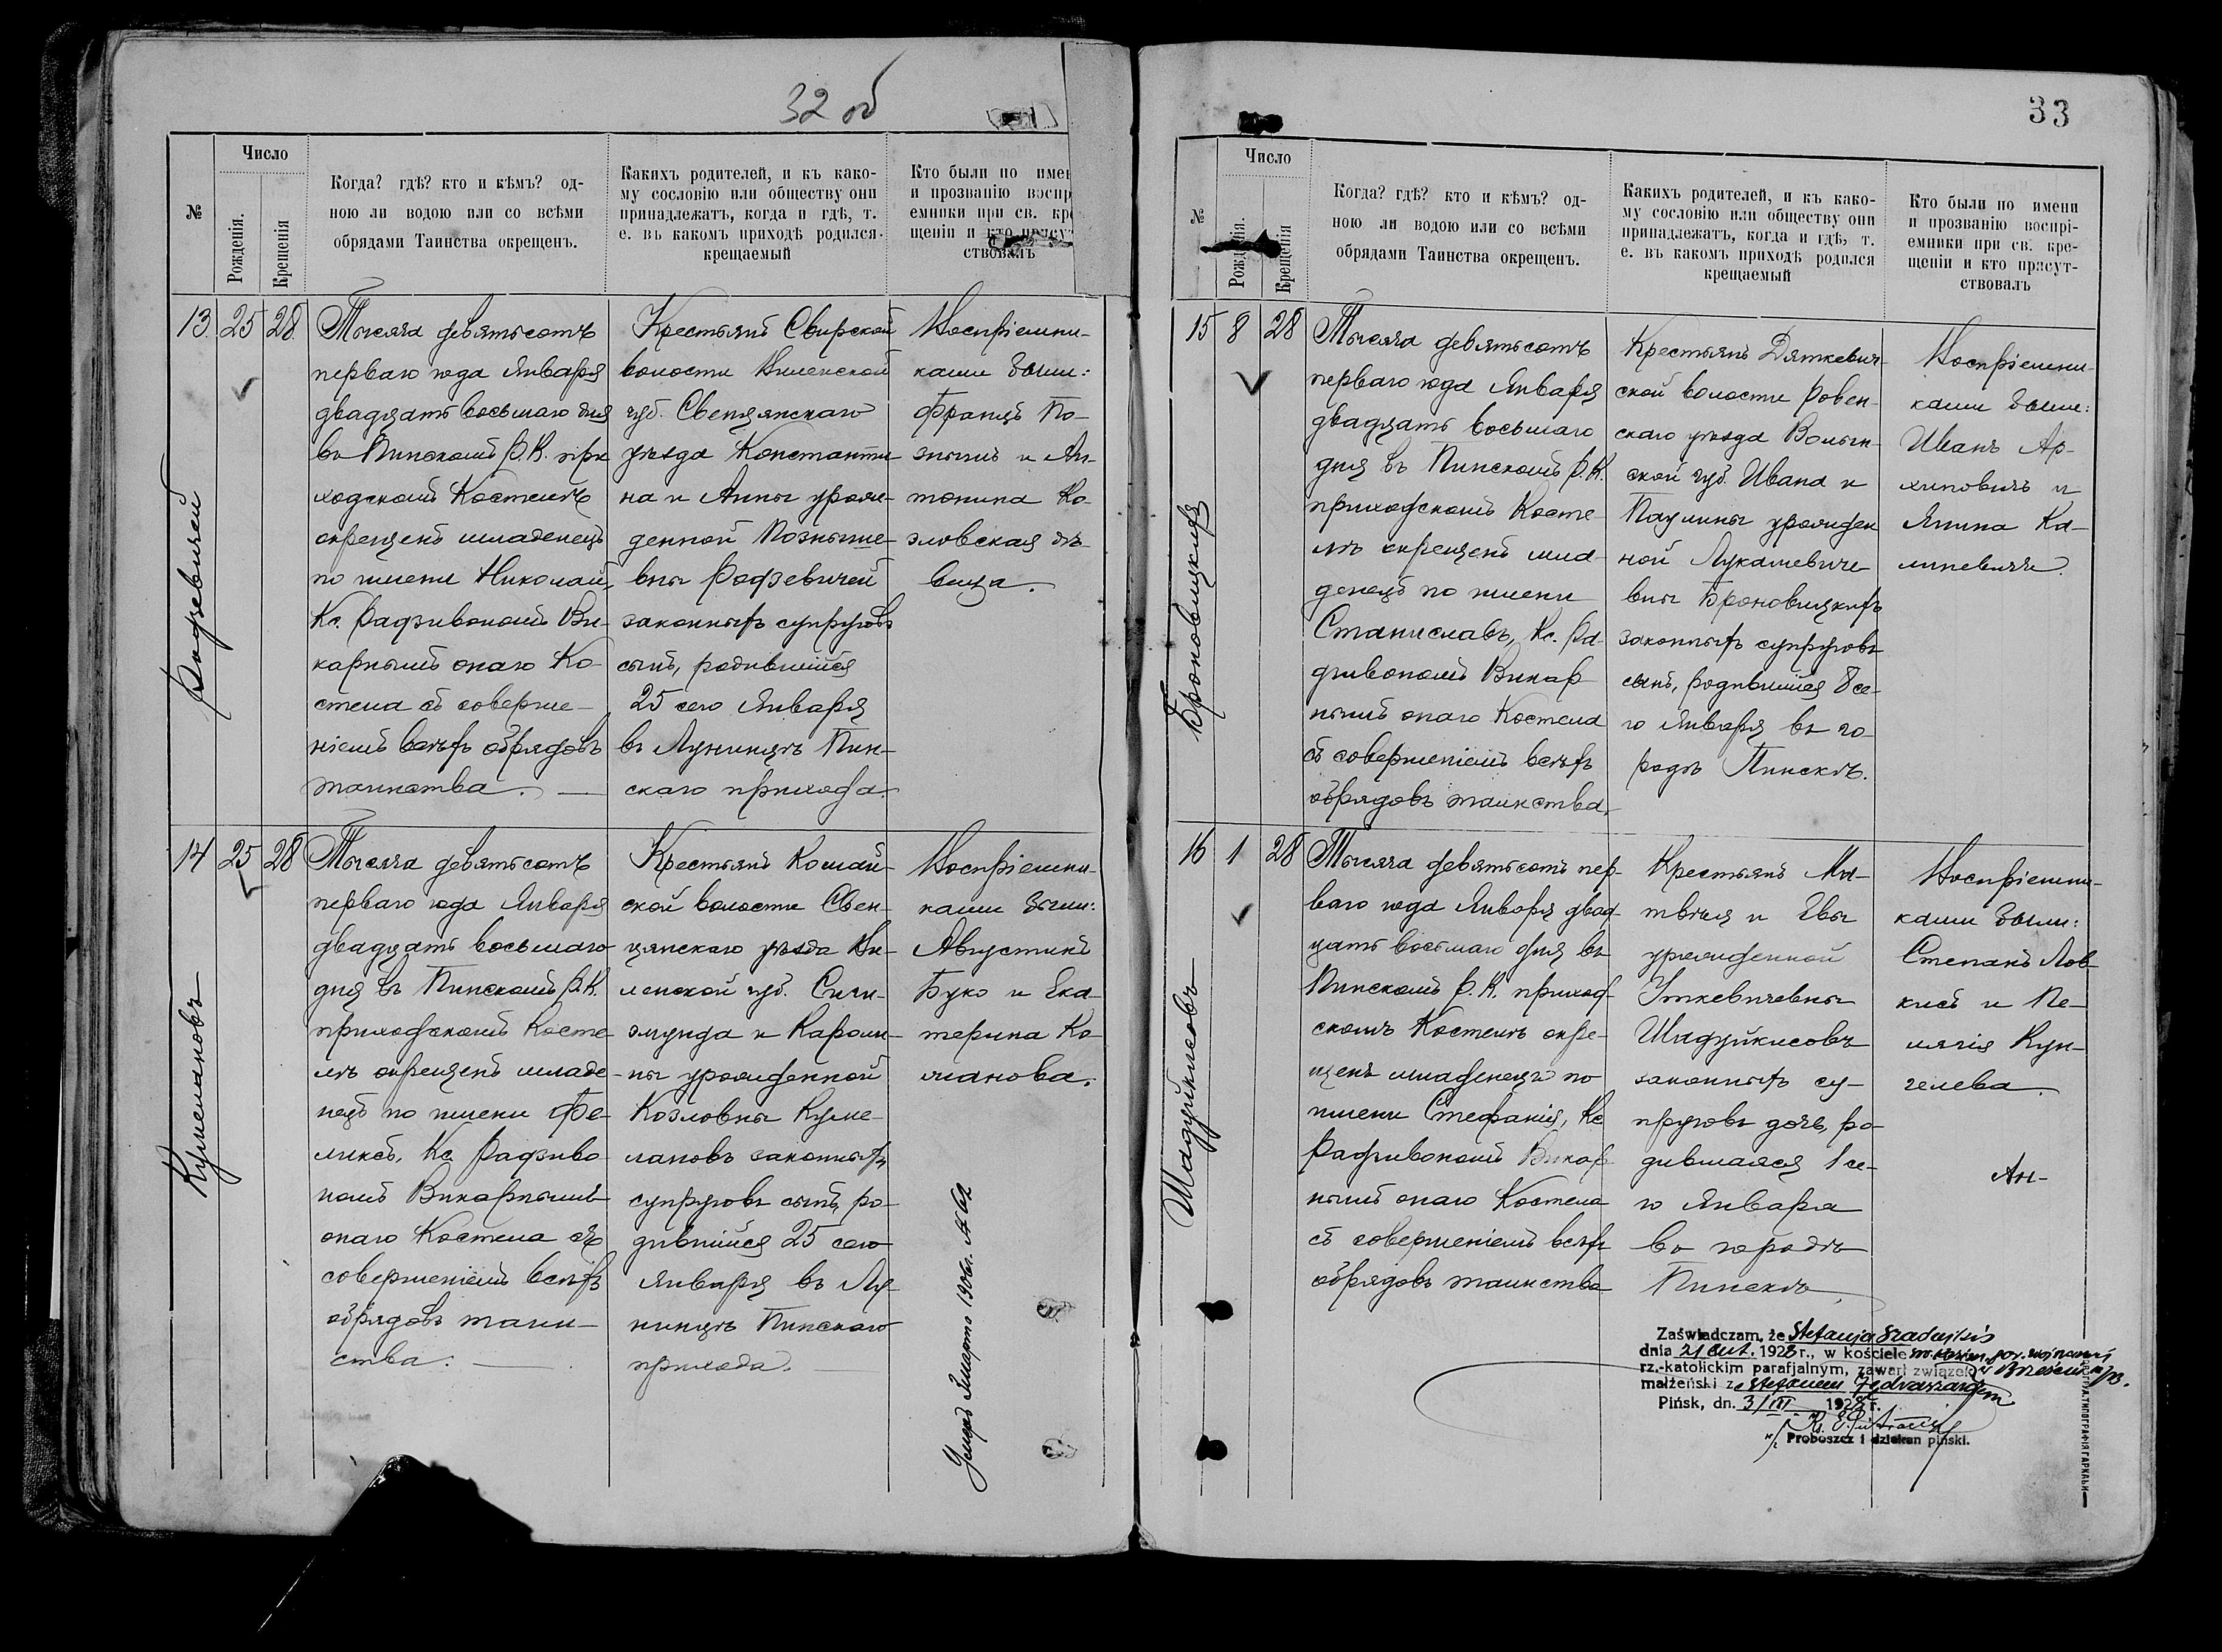 32 об
№
Число
Рожденія.
Крещенія
Когда? гдѣ? кто и кѣмъ? од-
ною ли водою или со всѣми
обрядами Таинства окрещенъ.
Какихъ родителей, и къ како-
му сословію или обществу они
принадлежатъ, когда и гдѣ, т.
е. въ какомъ приходѣ родился
крещаемый
Кто были по имен
и прозванію воспр
емники при св. кре
щеніи и кто присут
ствовалъ
13. 25 28.
Радзевичей
Тысяча девятьсотъ
перваго года Января
двадцать восьмаго дня
въ Пинскомъ Р. К. при
ходскомъ Костелѣ
окрещенъ младенецъ
по имени Николай,
Кс. Радзивономъ Ви-
карнымъ онаго Ко-
стела съ соверше-
ніемъ всѣхъ обрядовъ
таинства.
Крестьянъ Свирской
волости Виленской
губ. Свенцянскаго
уѣзда Константи-
на и Анны урож-
денной Позныше-
вны Радзевичей
законныхъ супруговъ
сынъ, родившійся
25 сего Января
въ Лунинцѣ Пин-
скаго прихода.
Воспріемни-
ками были:
Францъ По-
знышъ и Ан-
тонина Ко-
зловская дѣ-
вица.
14 25 28
Кумелановъ
Тысяча девятьсотъ
перваго года Января
двадцать восьмаго
дня въ Пинскомъ Р. К.
приходскомъ Косте
лѣ окрещенъ младе-
нецъ по имени Фе-
ликсъ, Кс. Радзиво
номъ Викарнымъ
онаго Костела съ
совершеніемъ всѣхъ
обрядовъ таин-
ства.
Крестьянъ Комай-
ской волости Свен-
цянскаго уѣзда Ви-
ленской губ. Сиги-
змунда и Кароли-
ны урожденной
Козловны Куме-
лановъ законныхъ
супруговъ сынъ, ро-
дившійся 25 сего
Января въ Лу-
нинцѣ Пинскаго
прихода.
Воспріемни-
ками были:
Августинъ
Буко и Ека-
терина Ко-
манова.
Умеръ 1906г. № 62
33
№
Число
Рожденія.
Крещенія
Когда? гдѣ? кто и кѣмъ? од-
ною ли водою или со всѣми
обрядами Таинства окрещенъ.
Какихъ родителей, и къ како-
му сословію или обществу они
принадлежатъ, когда и гдѣ, т.
е. въ какомъ приходѣ родился
крещаемый
Кто были по имени
и прозванію воспрі-
емники при св. кре-
щеніи и кто присут-
ствовалъ
15 8 28
Броновицкихъ
Тысяча девятьсотъ
перваго года Января
двадцать восьмаго
дня въ Пинскомъ Р. К.
приходскомъ Косте-
лѣ окрещенъ мла-
денецъ по имени
Станиславъ, Кс. Ра-
дзивономъ Викар
нымъ онаго Костела
съ совершеніемъ всѣхъ
обрядовъ таинства.
Крестьянъ Дяткевич-
ской волости Ровен-
скаго уѣзда Волын-
ской губ. Ивана и
Паулины урожден
ной Лукашевиче
вны Броновицкихъ
законныхъ супруговъ
сынъ, родившійся 8 се-
го Января въ го-
родѣ Пинскѣ.
Воспріемни-
ками были:
Иванъ Ар-
хиповичъ и
Янина Ка-
линевичъ.
16 1 28
Шадуйкисовъ
Тысяча девятьсотъ пер-
ваго года Января двад-
цать восьмаго дня въ
Пинскомъ Р. К. приход-
скомъ Костелѣ окре-
щенъ младенецъ по
имени Стефанія, Кс
Радзивономъ Викар
нымъ онаго Костела
съ совершеніемъ всѣхъ
обрядовъ таинства
Крестьянъ Ма-
твѣя и Евы
урожденной
Уткевичевны
Шадуйкисовъ
законныхъ су-
пруговъ дочь, ро-
дившаяся 1 се-
го Января
въ городѣ
Пинскѣ.
Воспріемни-
ками были:
Степанъ Лов-
кисъ и Пе-
лагія Кун-
гелева.
Ан-
Zaświadczam, że Stefanja Szadujkis
dnia 21 lut. 1928 r., w kościele
rz.-katolickim parafjalnym, zawarł związek
małżeński z Stefanem
Pińsk, dn. 3/III 1928 r.
Proboszcz i dziekan piński.